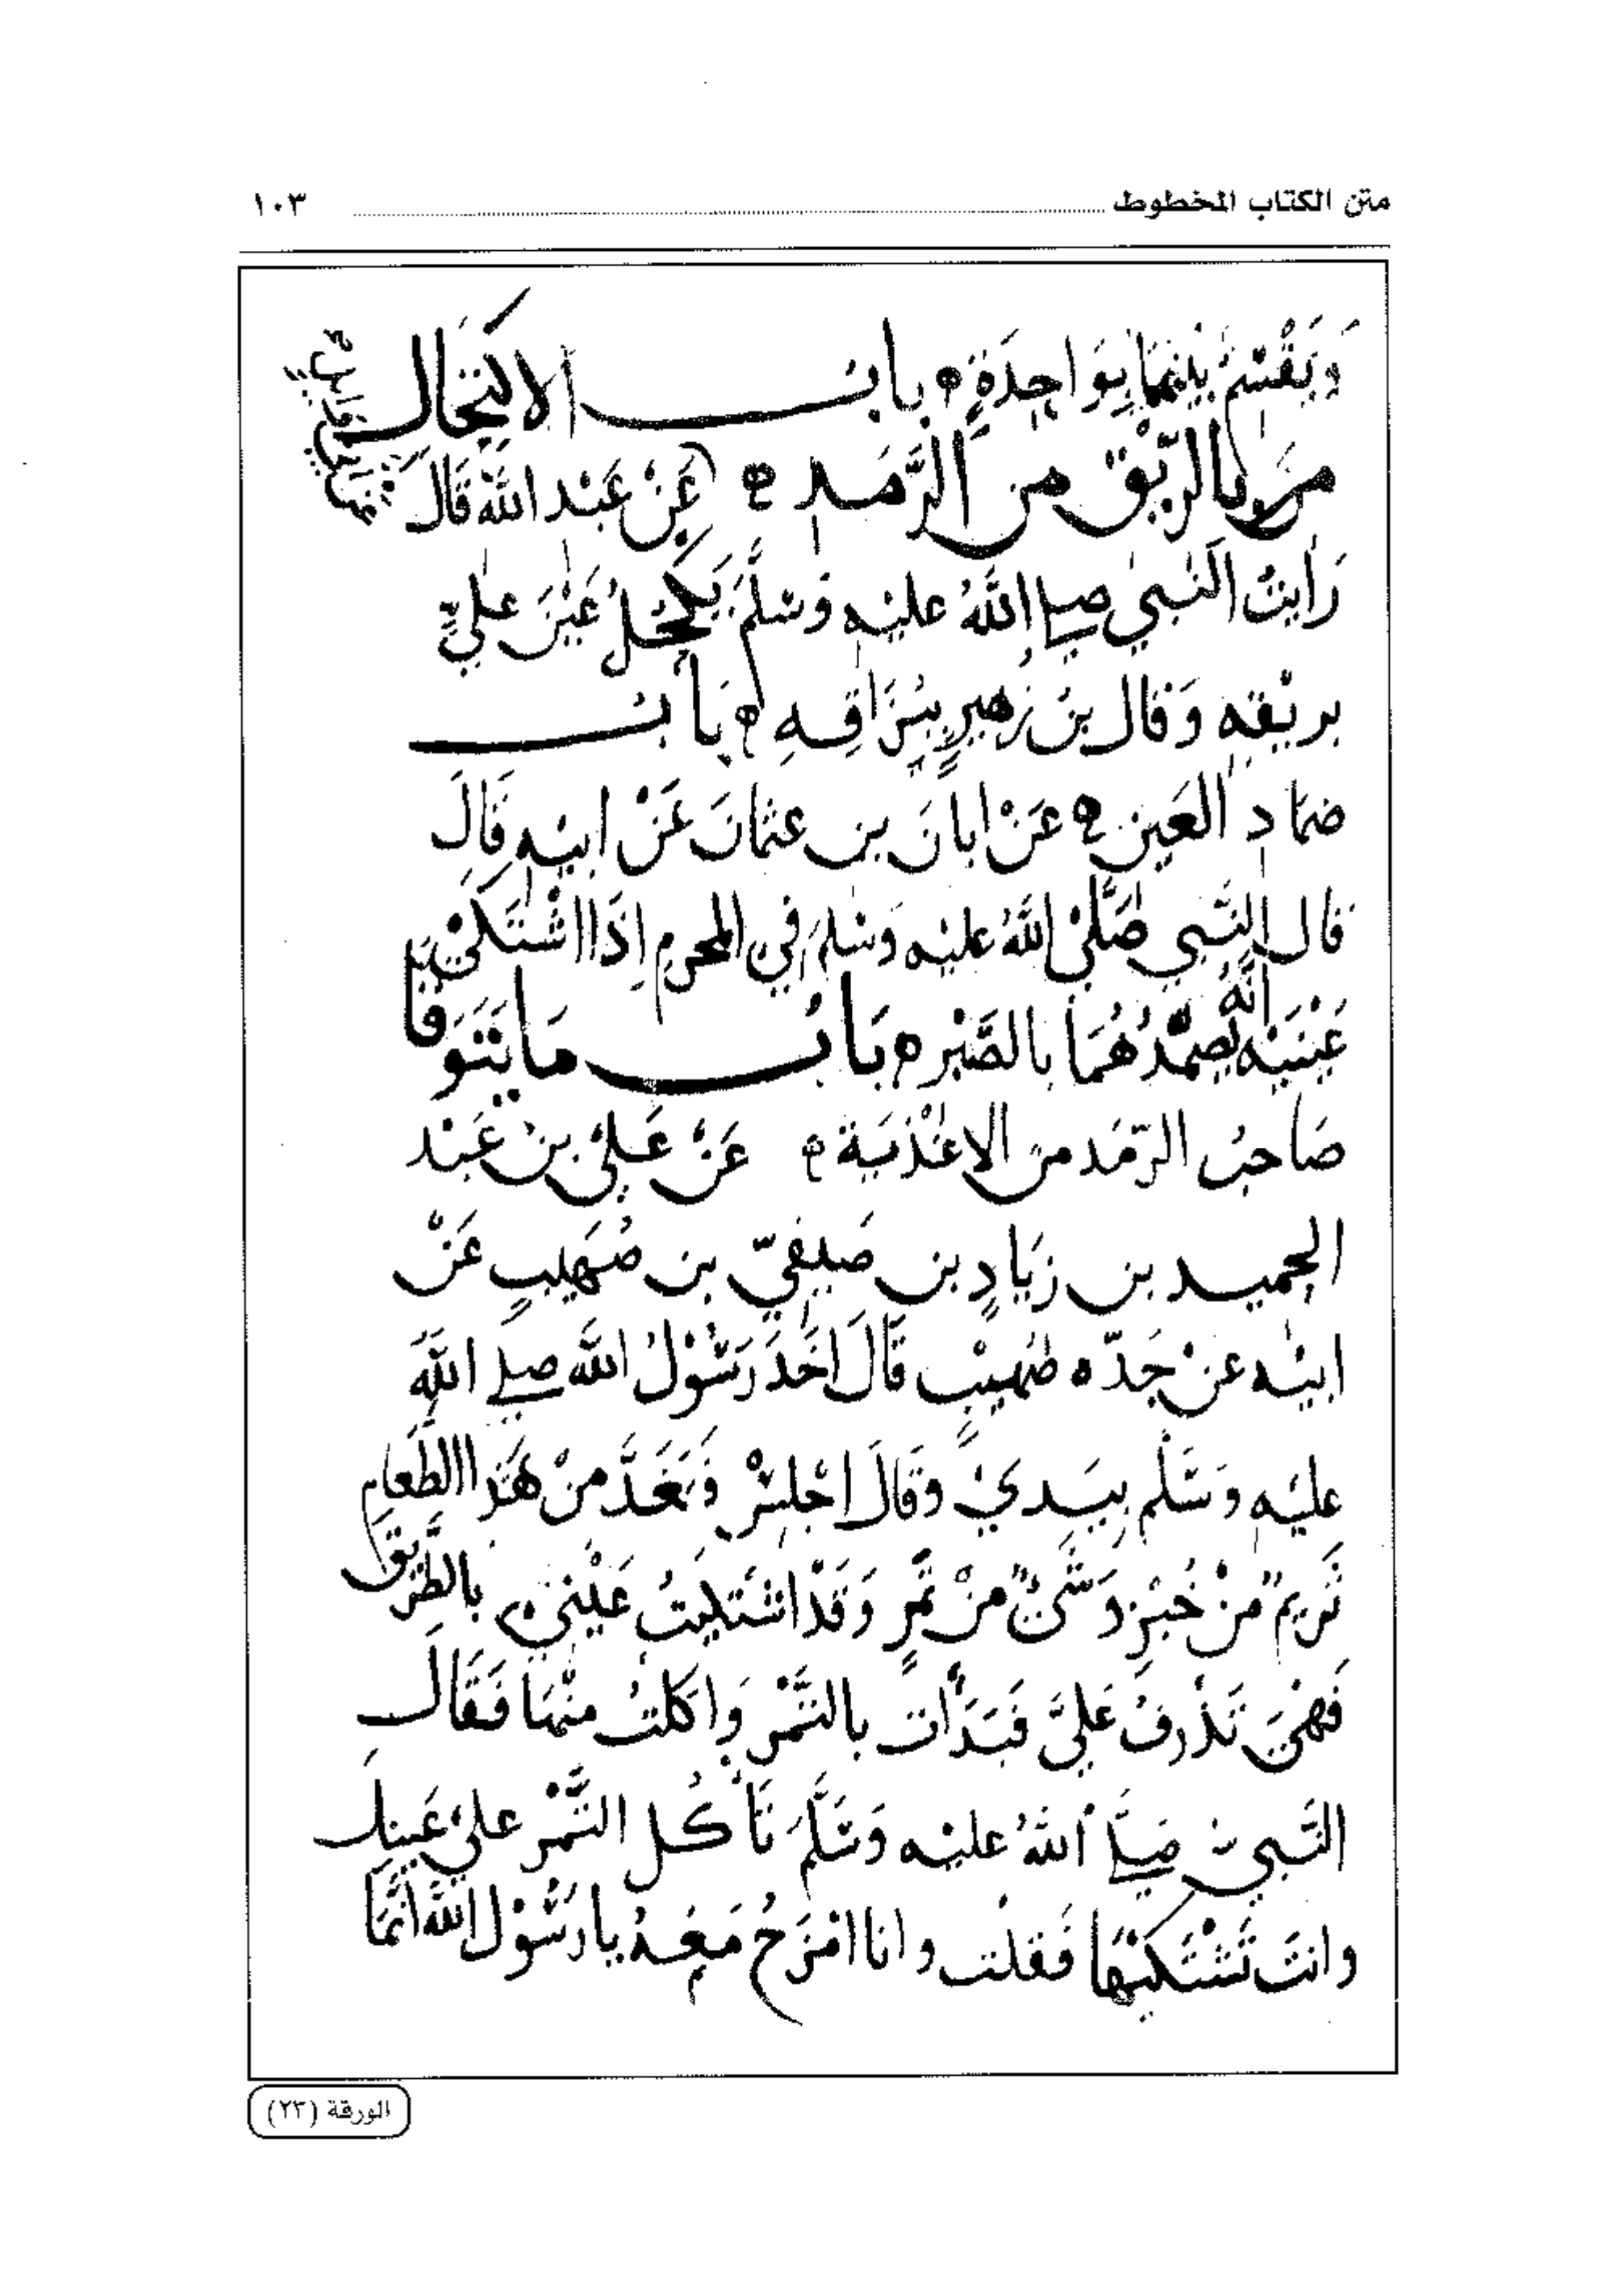 متن الكتاب المخطوط ١٠٣
وَيَقْسِمُ بَيْنَهُمَا بِوَاحِدَةٍ ه باب الاكتحال
بالرِّيق من الرَّمَد ه عَنْ عَبْد اللهِ قَالَ
رَايتُ النَّبيَّ صلى اللهُ عليْهِ وَسَلَّمَ يكحُلُ عَيْنَ عليٍّ
بريْقهِ وَقال بنُ زُهيرٍ ببُزَاقِهِ ه بَابُ
ضمَاد العَين ه عَنْ ابانَ بن عثمانَ عَنْ ابيْهِ قَالَ
قال النَّبي صَلّى اللهُ عليْه وَسَلمَ في المحرمِ إِذَا اشْتَكىٰ
عَيْنَيْه انَّهُ يُضمِّدُهُمَا بالصَّبْرِ ه بَابُ مَا يَتَوقا
صَاحبُ الرَّمَد من الاغْذيَة ه عَنْ عَليّ بن عَبْد
الحميد بن زيَادِ بن صَيفيّ بن صُهَيبٍ عَنْ
ابيْه عنْ جَدّه صُهيبٍ قَالَ اخَذَ رَسُوْلُ الله صلى اللهُ
عليْه وَسَلّم بيَديْ وقَالَ اجْلِسْ وَتَغَدَّ مِنْ هَذا الطَّعَامِ
منْ خُبْزٍ وَشَيْءٌ منْ تَمْرٍ وَقَدْ اشْتَكيتُ عَيْني بالطَّريق
فَهْيَ تَذْرفُ عَليَّ فَبَدَأت بالتَّمْر وَاكلتُ منْهَا فَقَال
النَّبيُّ صَلَّى اللهُ عليْه وَسَلَّمَ تَأْكُل التَّمْر علىٰ عَينك
وانتَ تَشْتَكيْهَا فَقلت وانا امْزَحُ مَعَهُ يا رَسُوْل الله انَّمَا
الورقة (٢٣)